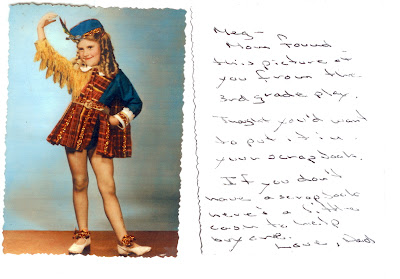 Meg -
Mom found
this picture of
you from the
3rd grade play.
Thought you'd want
to put it in
your scrapbook.
If you don't
have a scrapbook
here's a little
cash to help
buy one.
Love, Dad